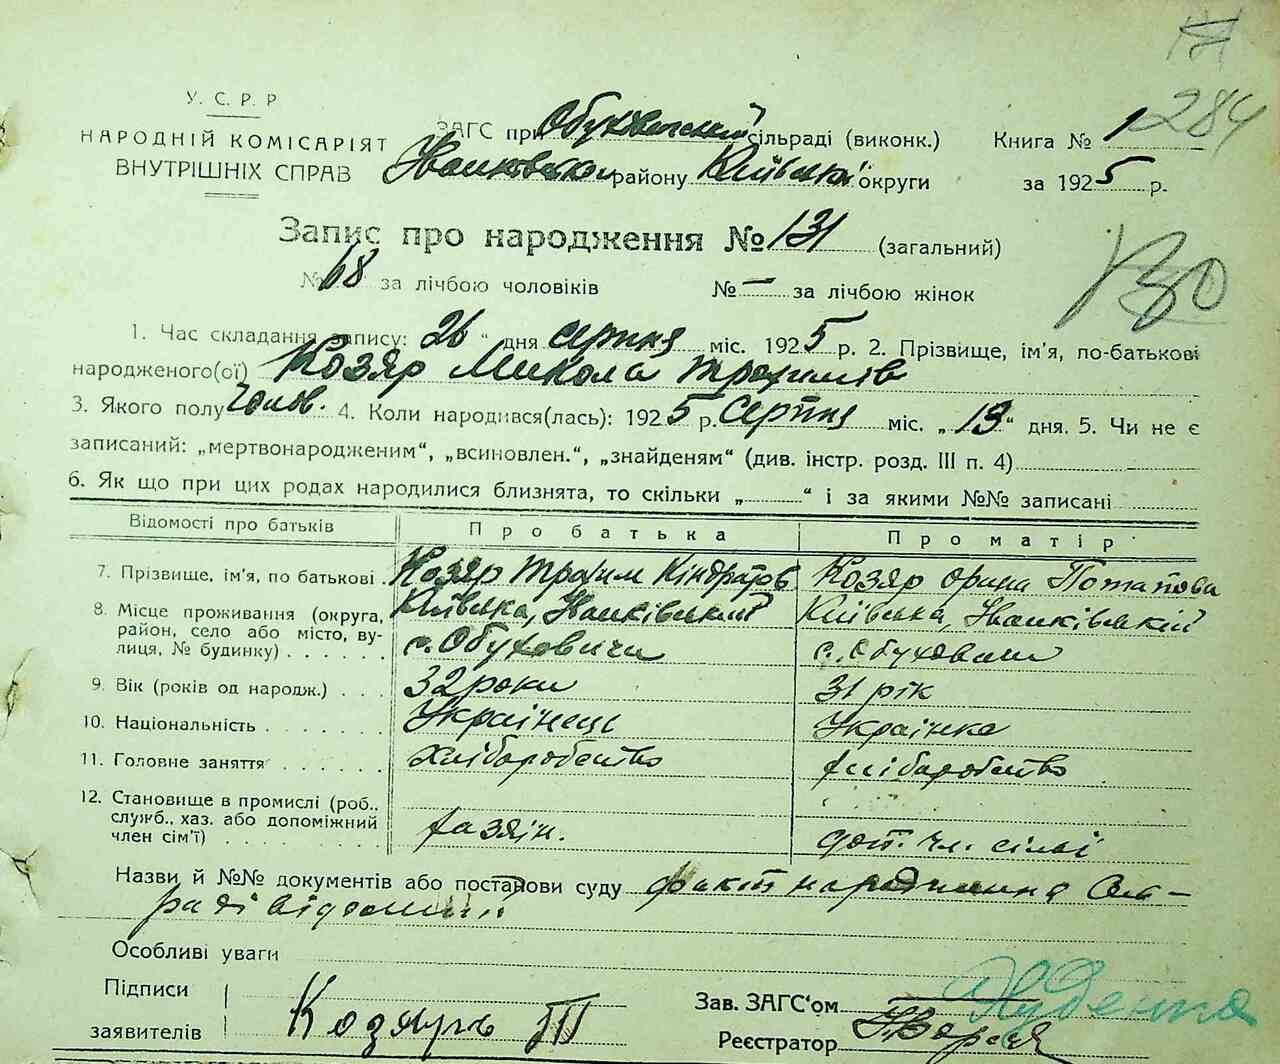 284
У. С. Р. Р
НАРОДНІЙ КОМІСАРІЯТ
ВНУТРІШНІХ СПРАВ
ЗАГС при Обуховицькій сільраді (виконк.) Книга № 1
Іванковськ району Київської округи за 1925 р.
Запис про народження № 131 (загальний)
№ 68 за лічбою чоловіків № — за лічбою жінок
130
1. Час складання запису: 26 " дня серпня міс. 1925 р. 2. Прізвище, ім'я, по-батькові
народженого(ої) Козяр Микола Трохимів
3. Якого полу Чолов. 4. Коли народився(лась): 1925 р. серпня міс. „ 19 " дня. 5. Чи не є
записаний: „мертвонародженим", „всиновлен.", „знайденям" (див. інстр. розд. III п. 4)
6. Як що при цих родах народилися близнята, то скільки „ " і за якими №№ записані
Відомості про батьків Про батька Про матір
7. Прізвище, ім'я, по батькові Козяр Трохим Кіндратов Козяр Орина Потапова
8. Місце проживання (округа, Київська, Іванківський Київська, Іванківський
район, село або місто, ву-
лиця, № будинку) с. Обуховичи с. Обуховичи
9. Вік (років од народж.) 32 роки 31 рік
10. Національність Українець Українка
11. Головне заняття хліборобство хліборобство
12. Становище в промислі (роб.,
служб., хаз. або допоміжний
член сім'ї) хазяін. доп. чл. сімі
Назви й №№ документів або постанови суду факт народження сіль-
раді відомий
Особливі уваги
Підписи
заявителів Козяръ Т
Зав. ЗАГС'ом Руденко
Реєстратор